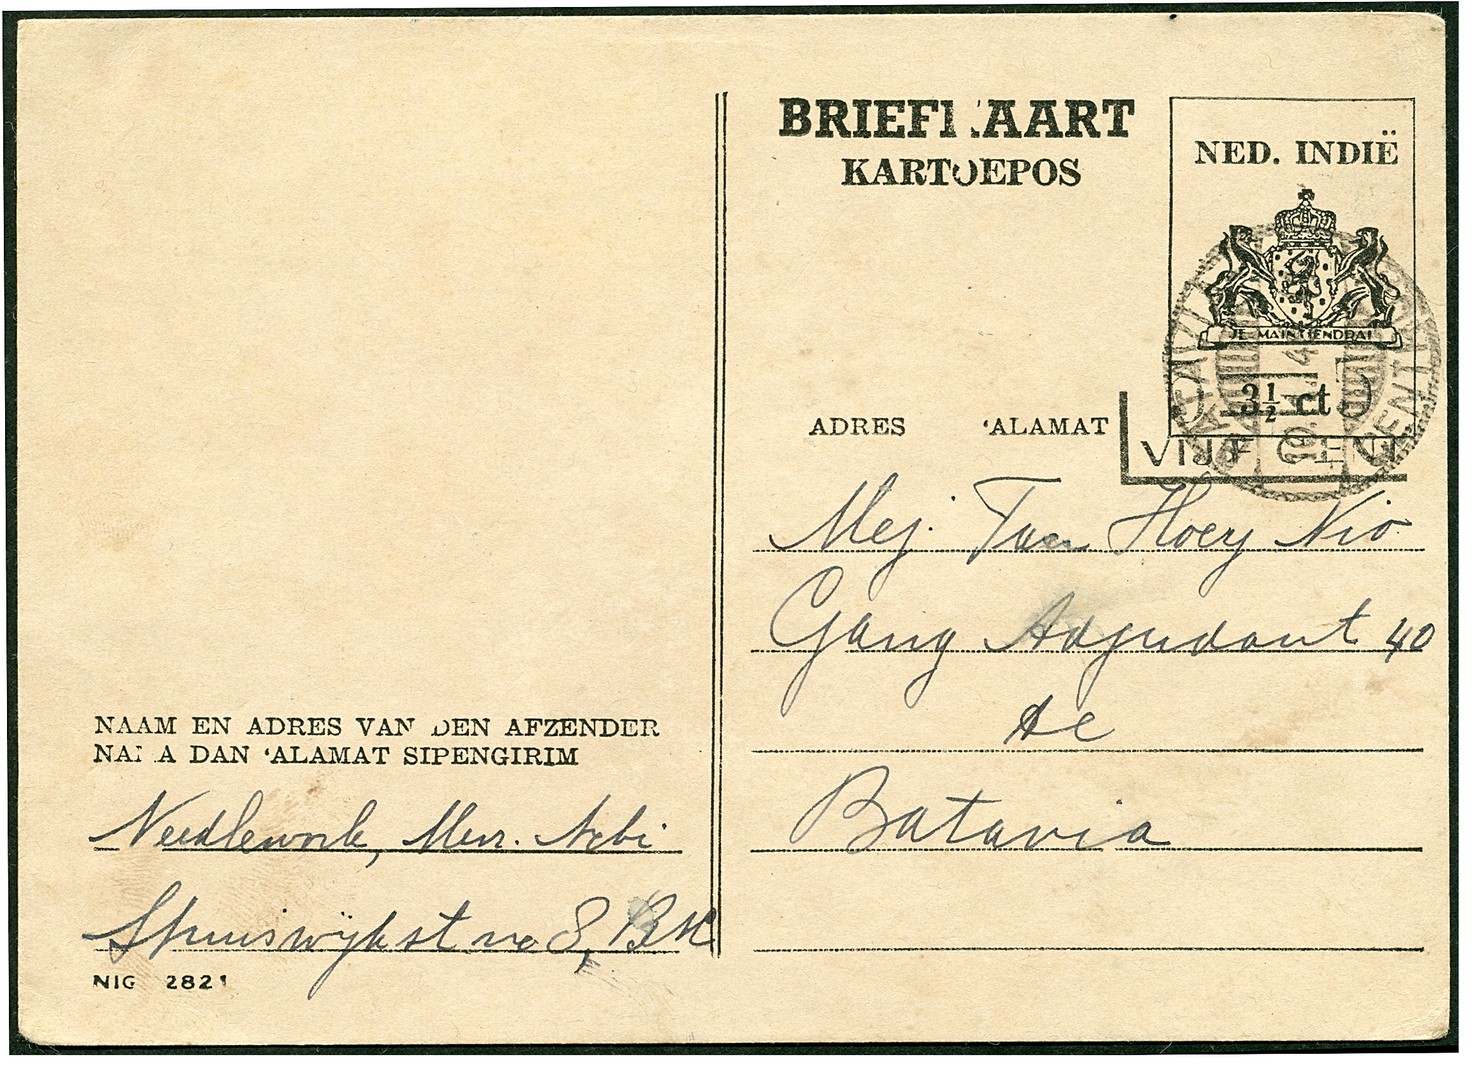 BRIEFKAART
KARTOEPOS
NED. INDIË
JE MAINTIENDRAI
3½ ct
VIJF CENT
ADRES ‘ALAMAT
Mej. Tan Hoey Nio
Gang Adjudant 40
Batavia
NAAM EN ADRES VAN DEN AFZENDER
NAMA DAN ‘ALAMAT SIPENGIRIM
Needlework, Mevr.
8,
NIG 2821